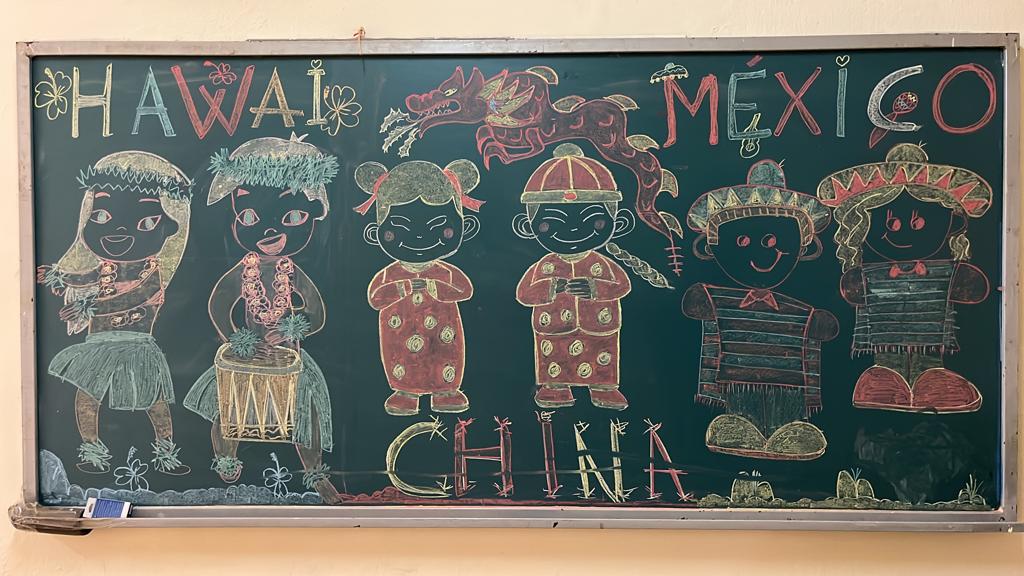 HAWAI
MÉXICO
CHINA